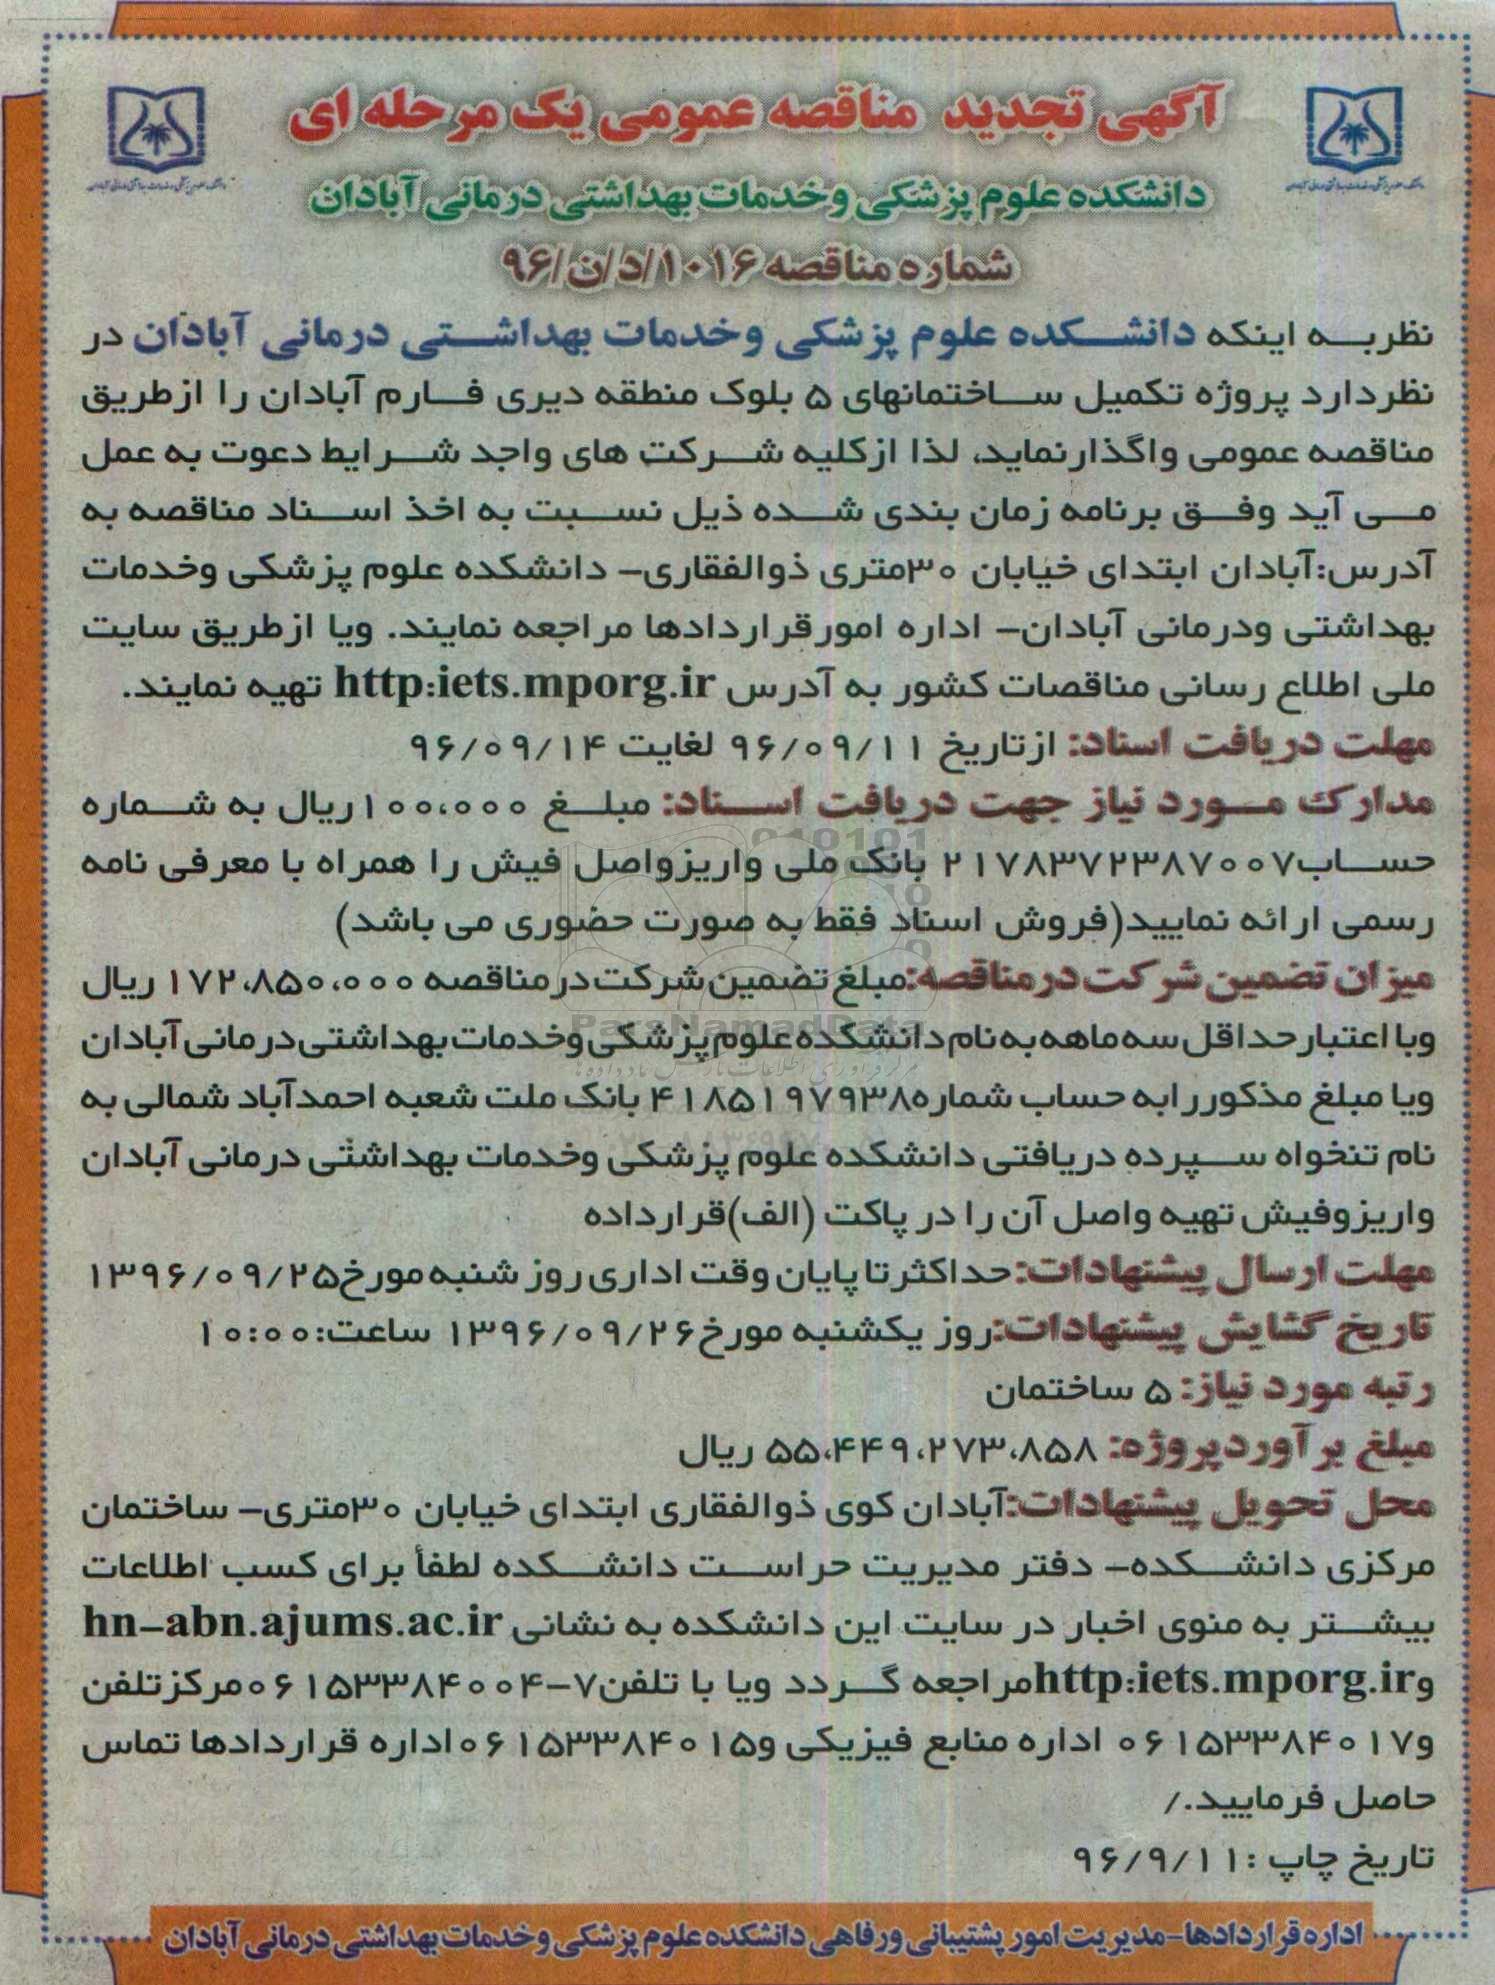 آگهی تجدید مناقصه عمومی یک مرحله ای
دانشکده علوم پزشکی وخدمات بهداشتی درمانی آبادان
شماره مناقصه ۱۰۱۶/د/ن/۹۶
نظربه اینکه دانشکده علوم پزشکی وخدمات بهداشتی درمانی آبادان در
نظردارد پروژه تکمیل ساختمانهای ۵ بلوک منطقه دیری فارم آبادان را ازطریق
مناقصه عمومی واگذارنماید، لذا ازکلیه شرکت های واجد شرایط دعوت به عمل
می آید وفق برنامه زمان بندی شده ذیل نسبت به اخذ اسناد مناقصه به
آدرس:آبادان ابتدای خیابان ۳۰متری ذوالفقاری– دانشکده علوم پزشکی وخدمات
بهداشتی ودرمانی آبادان– اداره امورقراردادها مراجعه نمایند. ویا ازطریق سایت
ملی اطلاع رسانی مناقصات کشور به آدرس http:iets.mporg.ir تهیه نمایند.
مهلت دریافت اسناد: ازتاریخ ۹۶/۰۹/۱۱ لغایت ۹۶/۰۹/۱۴
مدارک مورد نیاز جهت دریافت اسناد: مبلغ ۱۰۰،۰۰۰ریال به شماره
حساب۲۱۷۸۳۷۲۳۸۷۰۰۷ بانک ملی واریزواصل فیش را همراه با معرفی نامه
رسمی ارائه نمایید(فروش اسناد فقط به صورت حضوری می باشد)
ParsNamadData
میزان تضمین شرکت درمناقصه:مبلغ تضمین شرکت درمناقصه ۱۷۲،۸۵۰،۰۰۰ ریال
وبا اعتبارحداقل سه ماهه به نام دانشکده علوم پزشکی وخدمات بهداشتی درمانی آبادان
ویا مبلغ مذکوررابه حساب شماره۴۱۸۵۱۹۷۹۳۸ بانک ملت شعبه احمدآباد شمالی به
نام تنخواه سپرده دریافتی دانشکده علوم پزشکی وخدمات بهداشتی درمانی آبادان
واریزوفیش تهیه واصل آن را در پاکت (الف)قرارداده
مهلت ارسال پیشنهادات:حداکثرتا پایان وقت اداری روز شنبه مورخ۱۳۹۶/۰۹/۲۵
تاریخ گشایش پیشنهادات:روز یکشنبه مورخ۱۳۹۶/۰۹/۲۶ ساعت:۱۰:۰۰
رتبه مورد نیاز: ۵ ساختمان
مبلغ برآوردپروژه: ۵۵،۴۴۹،۲۷۳،۸۵۸ ریال
محل تحویل پیشنهادات:آبادان کوی ذوالفقاری ابتدای خیابان ۳۰متری– ساختمان
مرکزی دانشکده– دفتر مدیریت حراست دانشکده لطفاً برای کسب اطلاعات
بیشتر به منوی اخبار در سایت این دانشکده به نشانی hn–abn.ajums.ac.ir
وhttp:iets.mporg.irمراجعه گردد ویا با تلفن۷–۰۶۱۵۳۳۸۴۰۰۴مرکزتلفن
و۰۶۱۵۳۳۸۴۰۱۷ اداره منابع فیزیکی و۰۶۱۵۳۳۸۴۰۱۵اداره قراردادها تماس
حاصل فرمایید./
تاریخ چاپ :۹۶/۹/۱۱
اداره قراردادها–مدیریت امورپشتیبانی ورفاهی دانشکده علوم پزشکی وخدمات بهداشتی درمانی آبادان